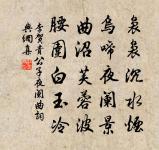 裊裊沉水煙
烏啼夜闌景
曲沼芙蓉波
腰圍白玉冷
李賀貴公子夜闌曲詞